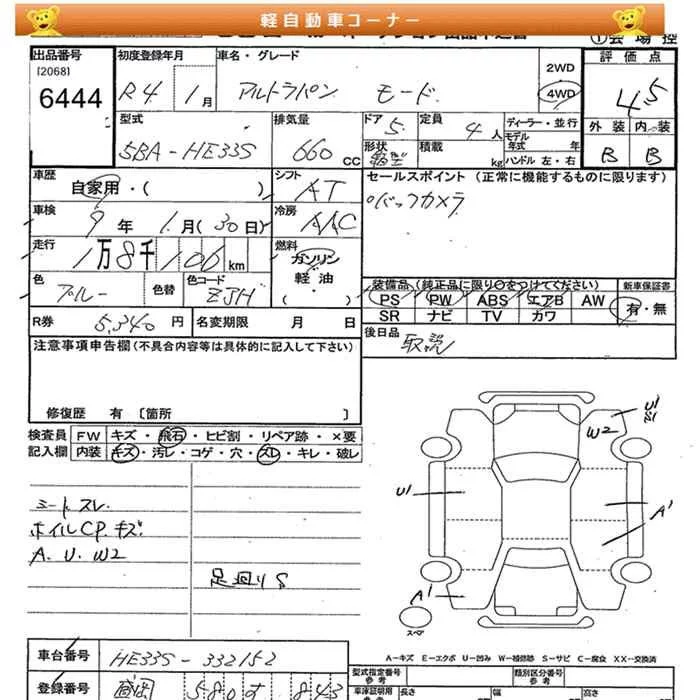 軽自動車コーナー
①会場控
出品番号
[2068]
6444
初度登録年月
R4 1月
車名・グレード
アルトラパン モード
2WD
4WD
評価点
4.5
外装 内装
B B
型式
5BA-HE33S
排気量
660 CC
ドア 5
定員 4人
形状
積載 kg
ディーラー・並行
モデル年式 年
ハンドル 左・右
車歴
自家用・( )
シフト
AT
セールスポイント (正常に機能するものに限ります)
バックカメラ
車検
9年 1月(30日)
冷房
AAC
走行
1万8千106km
燃料
ガソリン
軽油
( )
色
ブルー
色替
色コード
ZJH
装備品(純正品に限り○をつけてください)
PS PW ABS エアB AW
SR ナビ TV カワ
新車保証書
有・無
R券 5,340円
名変期限 月 日
後日品
取説
注意事項申告欄(不具合内容等は具体的に記入して下さい)
修復歴 有 〔箇所 〕
検査員記入欄
FW キズ・飛石・ヒビ割・リペア跡・×要
内装 キズ・汚レ・コゲ・穴・スレ・キレ・破レ
シートスレ
ホイルCPキズ
A.U.W2
足廻りS
U1
S1
W2
U1
A1
A1
スペア
A-キズ E-エクボ U-凹み W-補修跡 S-サビ C-腐食 XX-交換済
車台番号
HE33S-332152
登録番号
型式指定番号
参考
類別区分番号
参考
車庫証明用
参考
長さ
幅
高さ